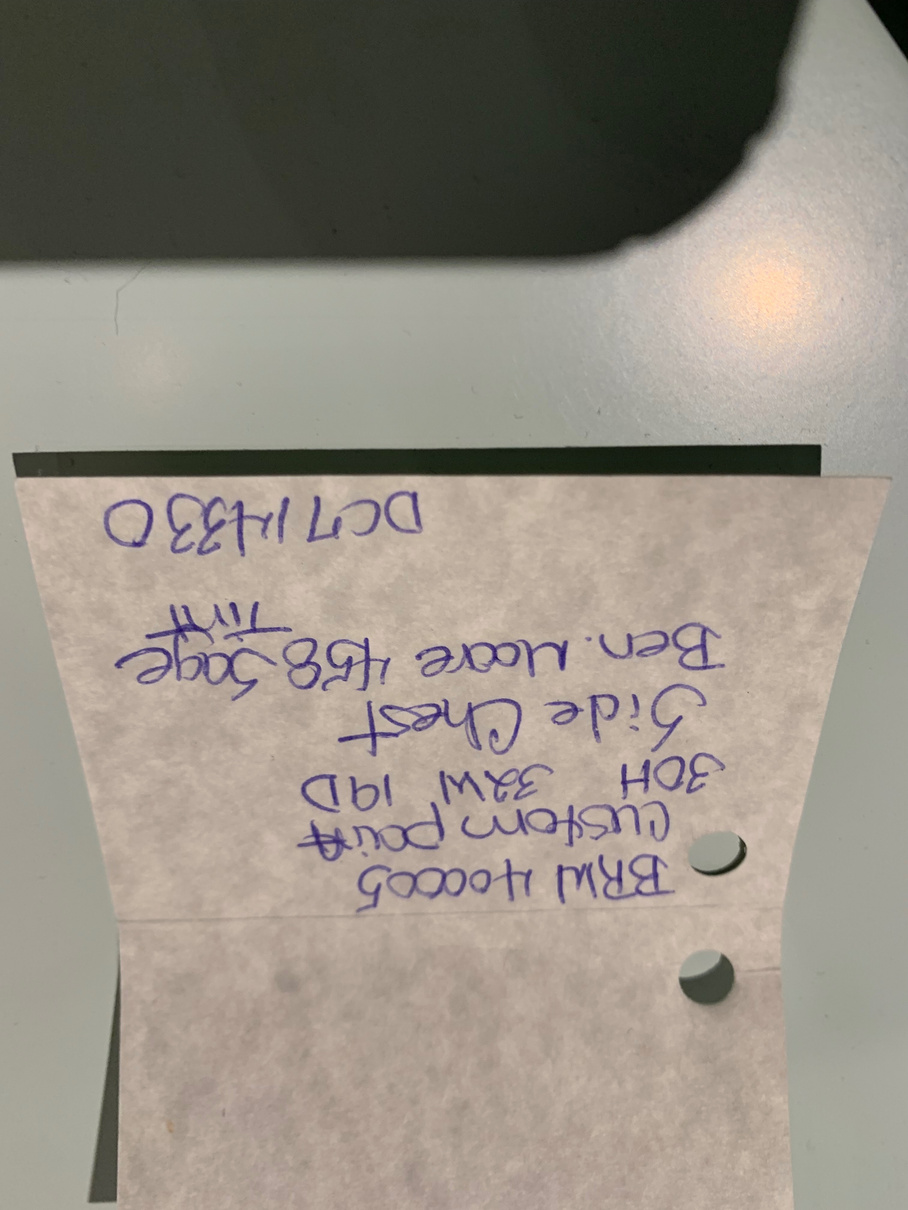 BRW 400005
custom paint
30H 32W 19D
Side Chest
Ben. Moore 458 Sage
Tint
DC714330